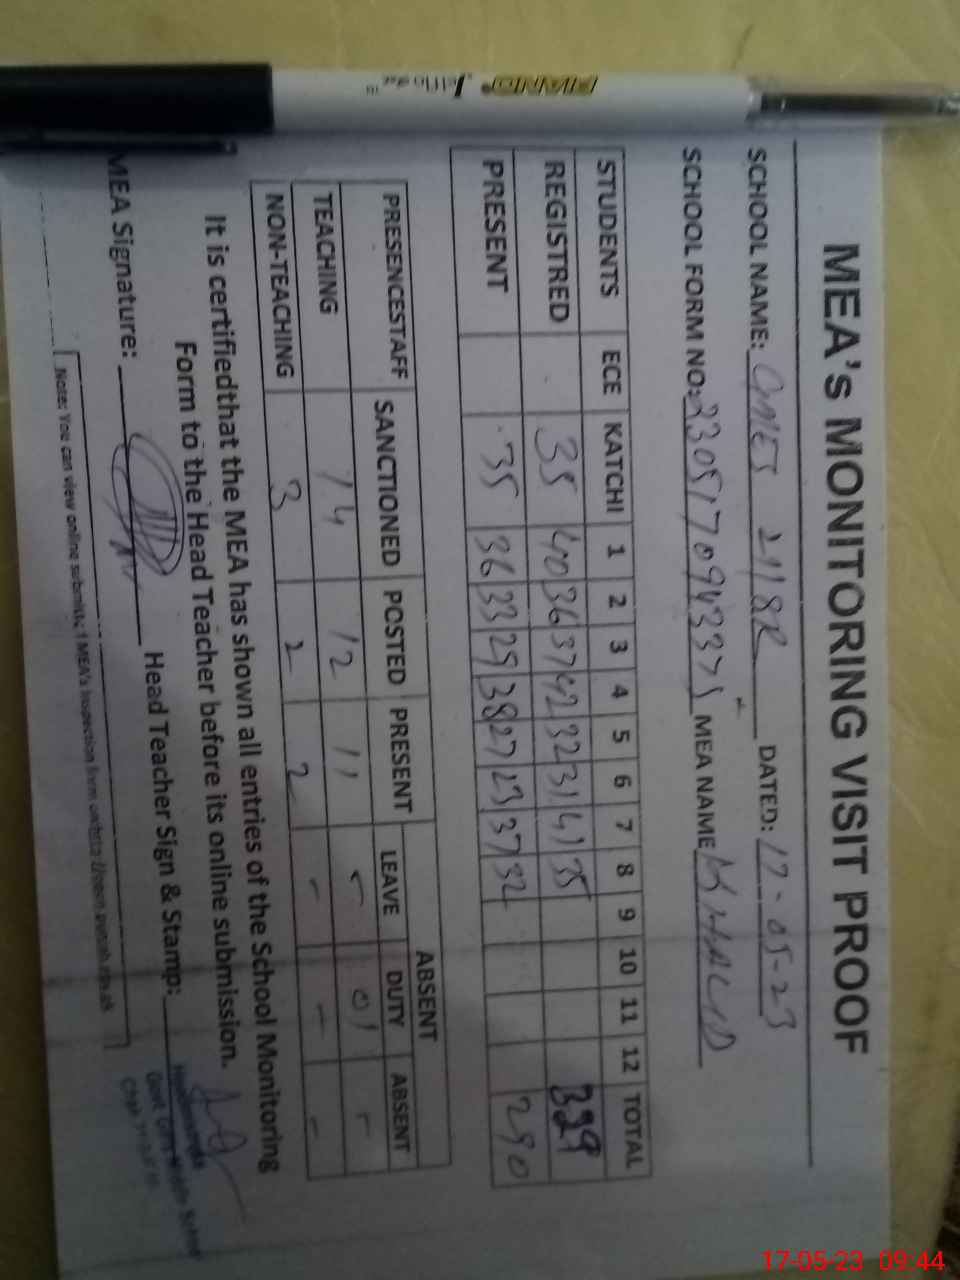 PIANO
MEA's MONITORING VISIT PROOF
SCHOOL NAME: GMES 2118R DATED: 17-05-23
SCHOOL FORM NO: MEA NAME KHALID
STUDENTS ECE KATCHI 1 2 3 4 5 6 7 8 9 10 11 12 TOTAL
REGISTRED 35 40 36 37 42 32 31 41 35 329
PRESENT 35 36 33 29 38 27 23 37 32 290
PRESENCESTAFF SANCTIONED POSTED PRESENT ABSENT
LEAVE DUTY ABSENT
TEACHING 14 12 11 - 01 -
NON-TEACHING 3 2 2 - - -
It is certifiedthat the MEA has shown all entries of the School Monitoring
Form to the Head Teacher before its online submission.
MEA Signature: Head Teacher Sign & Stamp:
Headmistress
Govt. Girls School
Note: You can view online submitted MEA's inspection form
17-05-23 09:44